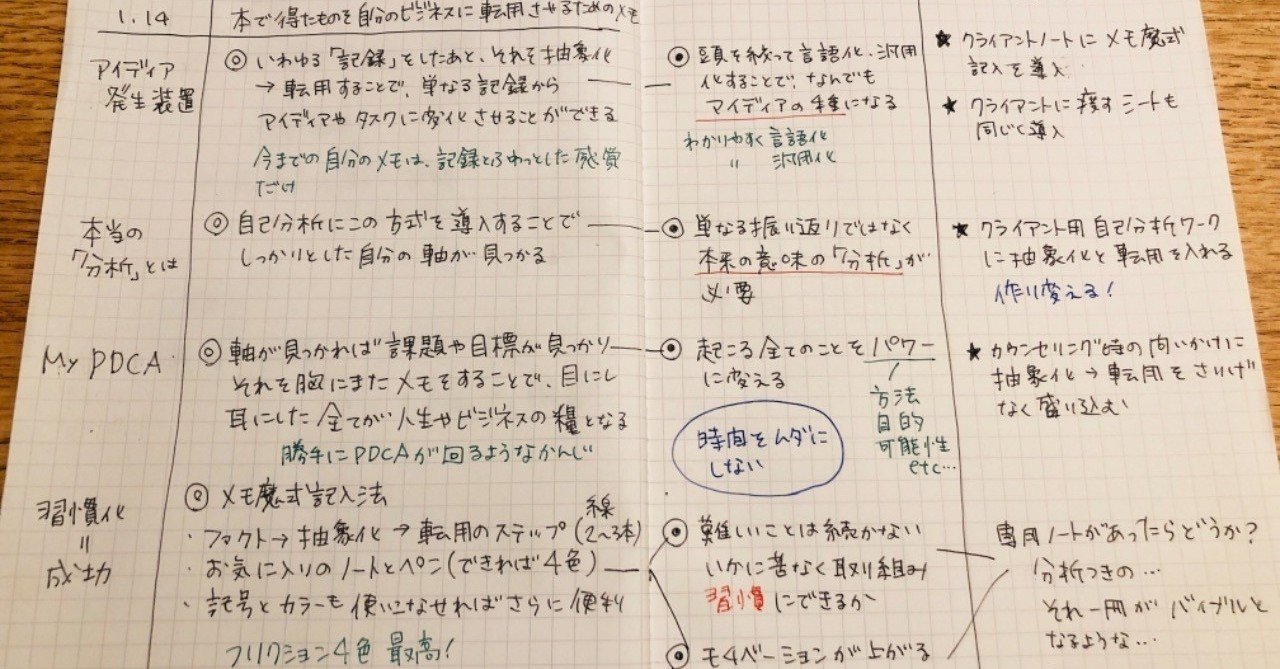 1.14
本で得たものを自分のビジネスに転用させるためのメモ
アイディア
発生装置
◎ いわゆる「記録」をしたあと、それを抽象化
→ 転用することで、単なる記録から
アイディアやタスクに変化させることができる
今までの自分のメモは、記録とふわっとした感覚
だけ
● 頭を絞って言語化、汎用
化することで、なんでも
アイディアの種になる
わかりやすく言語化
〃 汎用化
★ クライアントノートにメモ魔式
記入を導入
★ クライアントに渡すシートも
同じく導入
本当の
「分析」とは
◎ 自己分析にこの方式を導入することで
しっかりとした自分の軸が見つかる
● 単なる振り返りではなく
本来の意味の「分析」が
必要
★ クライアント用自己分析ワーク
に抽象化と転用を入れる
作り変える!
My PDCA
◎ 軸が見つかれば課題や目標が見つかり
それを胸にまたメモをすることで、目にし
耳にした全てが人生やビジネスの糧となる
勝手にPDCAが回るようなかんじ
● 起こる全てのことをパワー
に変える
方法
目的
可能性
etc…
時間をムダに
しない
★ カウンセリング時の問いかけに
抽象化→転用をさりげ
なく盛り込む
習慣化
=
成功
◎ メモ魔式記入法
・ファクト→抽象化→転用のステップ(2〜3本)
線
・お気に入りのノートとペン(できれば4色)
・記号とカラーも使いこなせればさらに便利
フリクション4色 最高!
● 難しいことは続かない
いかに苦なく取り組み
習慣にできるか
● モチベーションが上がる
専用ノートがあったらどうか?
分析つきの…
それ一冊がバイブルと
なるような…